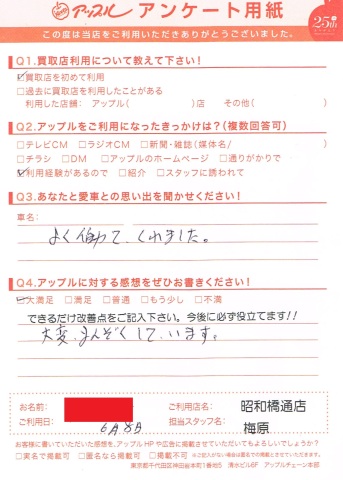 アップル アンケート用紙
25th
この度は当店をご利用いただきありがとうございました。
Q1.買取店利用について教えて下さい！
☑買取店を初めて利用
□過去に買取を利用したことがある
利用した店舗： アップル（ ）店 その他（ ）
Q2.アップルをご利用になったきっかけは？（複数回答可）
□テレビCM □ラジオCM □新聞・雑誌（媒体名/ ）
□チラシ □DM □アップルのホームページ □通りがかりで
☑利用経験があるので □紹介 □スタッフに誘われて
Q3.あなたと愛車との思い出を聞かせください！
車名：
よく働いて、くれました。
Q4.アップルに対する感想をぜひお書きください！
☑大満足 □満足 □普通 □もう少し □不満
できるだけ改善点をご記入下さい。今後に必ず役立てます!!
大変、まんぞくして、います。
お名前： ご利用店名： 昭和橋通店
ご利用日： 6月8日 担当スタッフ名： 梅原
お客様に書いていただいた感想を、アップルHPや広告に掲載させていただいてもよろしいでしょうか？
□実名で掲載可 □匿名なら掲載可 □掲載不可 ※ご記入がない場合は匿名での掲載とさせていただきます。
東京都千代田区神田谷本町1番地5 清水ビル6F アップルチェーン本部